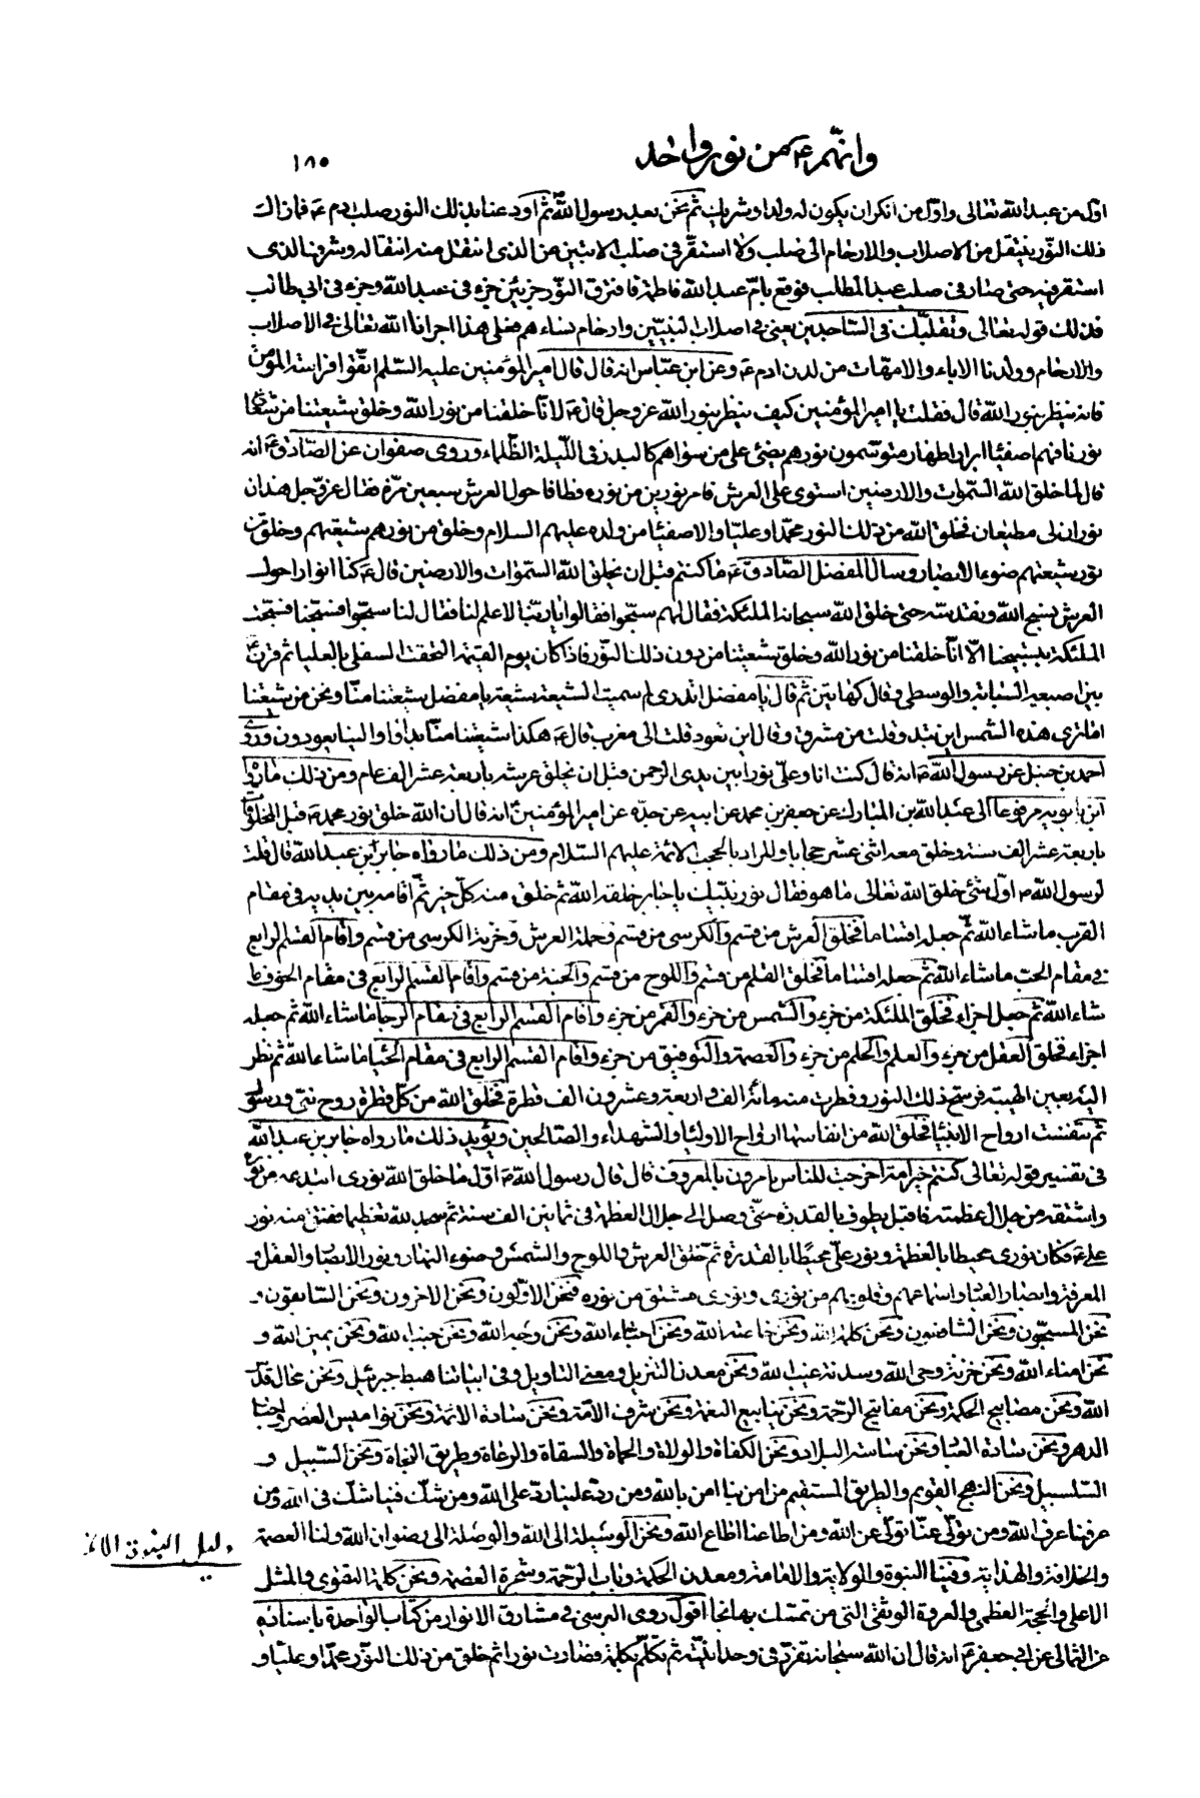 وانهم ع من نور واحد
١٨٥
اول من عبد الله تعالى واول من انكر ان يكون له ولد او شريك ثم نحن بعد رسول الله ثم اودعنا بذلك النور صلب ادم ع فما زال
ذلك النور ينتقل من الاصلاب والارحام الى صلب ولا استقر في صلب الا تبين عن الذي انتقل منه انتقاله وشرف الذي
استقر فيه حتى صار في صلب عبد المطلب فوقع بام عبد الله فاطمة فافترق النور جزئين جزء في عبد الله وجزء في ابي طالب
فذلك قوله تعالى وتقلبك في الساجدين يعني في اصلاب النبيين وارحام نساءهم فعلى هذا اجرانا الله تعالى في الاصلاب
والارحام وولدنا الاباء والامهات من لدن ادم ع وعن ابن عباس انه قال قال امير المؤمنين عليه السلم اتقوا فراسة المؤمن
فانه ينظر بنور الله قال فقلت يا امير المؤمنين كيف ينظر بنور الله عز وجل قال ع لانا خلقنا من نور الله وخلق شيعتنا من شعاع
نورنا فهم اصفياء ابرار اطهار متوسمون نورهم يضئ على من سواهم كالبدر في الليلة الظلماء وروى صفوان عن الصادق ع انه
قال لما خلق الله السموات والارضين استوى على العرش فامر نورين من نوره فطافا حول العرش سبعين مرة فقال عز وجل هذان
نوران لي مطيعان فخلق الله من ذلك النور محمدا وعليا والاصفياء من ولده عليهم السلام وخلق من نورهم شيعتهم وخلق من
نور شيعتهم ضوء الابصار وسال المفضل الصادق ع ما كنتم قبل ان يخلق الله السموات والارضين قال ع كنا انوارا حول
العرش نسبح الله ونقدسه حتى خلق الله سبحانه الملئكة فقال لهم سبحوا فقالوا يا ربنا لا علم لنا فقال لنا سبحوا فسبحنا فسبحت
الملئكة بتسبيحنا الا انا خلقنا من نور الله وخلق شيعتنا من دون ذلك النور فاذا كان يوم القيمة التحقت السفلى بالعليا ثم قرن ع
بين اصبعيه السبابة والوسطى وقال كهاتين ثم قال يا مفضل اتدري لم سميت الشيعة شيعة يا مفضل شيعتنا منا ونحن من شيعتنا
اما ترى هذه الشمس اين تبدو قلت من مشرق وقال اين تعود قلت الى مغرب قال ع هكذا شيعتنا منا بداوا والينا يعودون وروى
احمد بن حنبل عن رسول الله ص انه قال كنت انا وعلي نورا بين يدي الرحمن قبل ان يخلق عرشه باربعة عشر الف عام ومن ذلك ما رواه
ابن بابويه مرفوعا الى عبد الله بن المبارك عن جعفر بن محمد عن ابيه عن جده عن امير المؤمنين ع انه قال ان الله خلق نور محمد ص قبل المخلوقات
باربعة عشر الف سنة وخلق معه اثنى عشر حجابا والمراد بالحجب الائمة عليهم السلام ومن ذلك ما رواه جابر ابن عبد الله قال قلت
لرسول الله ص اول شئ خلق الله تعالى ما هو فقال نور نبيك يا جابر خلقه الله ثم خلق منه كل خير ثم اقامه بين يديه في مقام
القرب ما شاء الله ثم جعله اقساما فخلق العرش من قسم والكرسي من قسم وحملة العرش وخزنة الكرسي من قسم واقام القسم الرابع
في مقام الحب ما شاء الله ثم جعله اقساما فخلق القلم من قسم واللوح من قسم والجنة من قسم واقام القسم الرابع في مقام الخوف ما
شاء الله ثم جعل اجزاء فخلق الملئكة من جزء والشمس من جزء والقمر من جزء واقام القسم الرابع في مقام الرجا ما شاء الله ثم جعله
اجزاء فخلق العقل من جزء والعلم والحلم من جزء والعصمة والتوفيق من جزء واقام القسم الرابع في مقام الحيا ما شاء الله ثم نظر
اليه بعين الهيبة فرشح ذلك النور وقطرت منه مائة الف واربعة وعشرون الف قطرة فخلق الله من كل قطرة روح نبي ورسول
ثم تنفست ارواح الانبياء فخلق الله من انفاسها ارواح الاولياء والشهداء والصالحين ويؤيد ذلك ما رواه جابر بن عبد الله
في تفسير قوله تعالى كنتم خير امة اخرجت للناس يامرون بالمعروف قال قال رسول الله ص اول ما خلق الله نوري ابتدعه من نوره
واشتقه من جلال عظمته فاقبل يطوف بالقدرة حتى وصل الى جلال العظمة في ثمانين الف سنة ثم سجد لله تعظيما ففتق منه نور
علي ع فكان نوري محيطا بالعظمة ونور علي محيطا بالقدرة ثم خلق العرش واللوح والشمس وضوء النهار ونور الابصار والعقل و
المعرفة وابصار العباد واسماعهم وقلوبهم من نوري ونوري مشتق من نوره فنحن الاولون ونحن الاخرون ونحن السابقون و
نحن المسبحون ونحن الشافعون ونحن كلمة الله ونحن خاصة الله ونحن احباء الله ونحن وجه الله ونحن جنب الله ونحن يمين الله و
نحن امناء الله ونحن خزنة وحي الله وسدنة غيب الله ونحن معدن التنزيل ومعنى التاويل وفي ابياتنا هبط جبرئيل ونحن محال قدس
الله ونحن مصابيح الحكمة ونحن مفاتيح الرحمة ونحن ينابيع النعمة ونحن شرف الامة ونحن سادة الائمة ونحن نواميس العصر واحبار
الدهر ونحن سادة العباد ونحن ساسة البلاد ونحن الكفاة والولاة والحماة والسقاة والرعاة وطريق النجاة ونحن السبيل و
السلسبيل ونحن النهج القويم والطريق المستقيم من امن بنا امن بالله ومن رد علينا رد على الله ومن شك فينا شك في الله ومن
عرفنا عرف الله ومن تولى عنا تولى عن الله ومن اطاعنا اطاع الله ونحن الوسيلة الى الله والوصلة الى رضوان الله ولنا العصمة
والخلافة والهداية وفينا النبوة والولاية والامامة ومعدن الحكمة وباب الرحمة وشجرة العصمة ونحن كلمة التقوى والمثل
الاعلى والحجة العظمى والعروة الوثقى التي من تمسك بها نجا اقول روى البرسي في مشارق الانوار من كتاب الواحدة باسناده
عن الثمالي عن ابي جعفر ع انه قال ان الله سبحانه تفرد في وحدانيته ثم تكلم بكلمة فصارت نورا ثم خلق من ذلك النور محمدا وعليا و
دليل